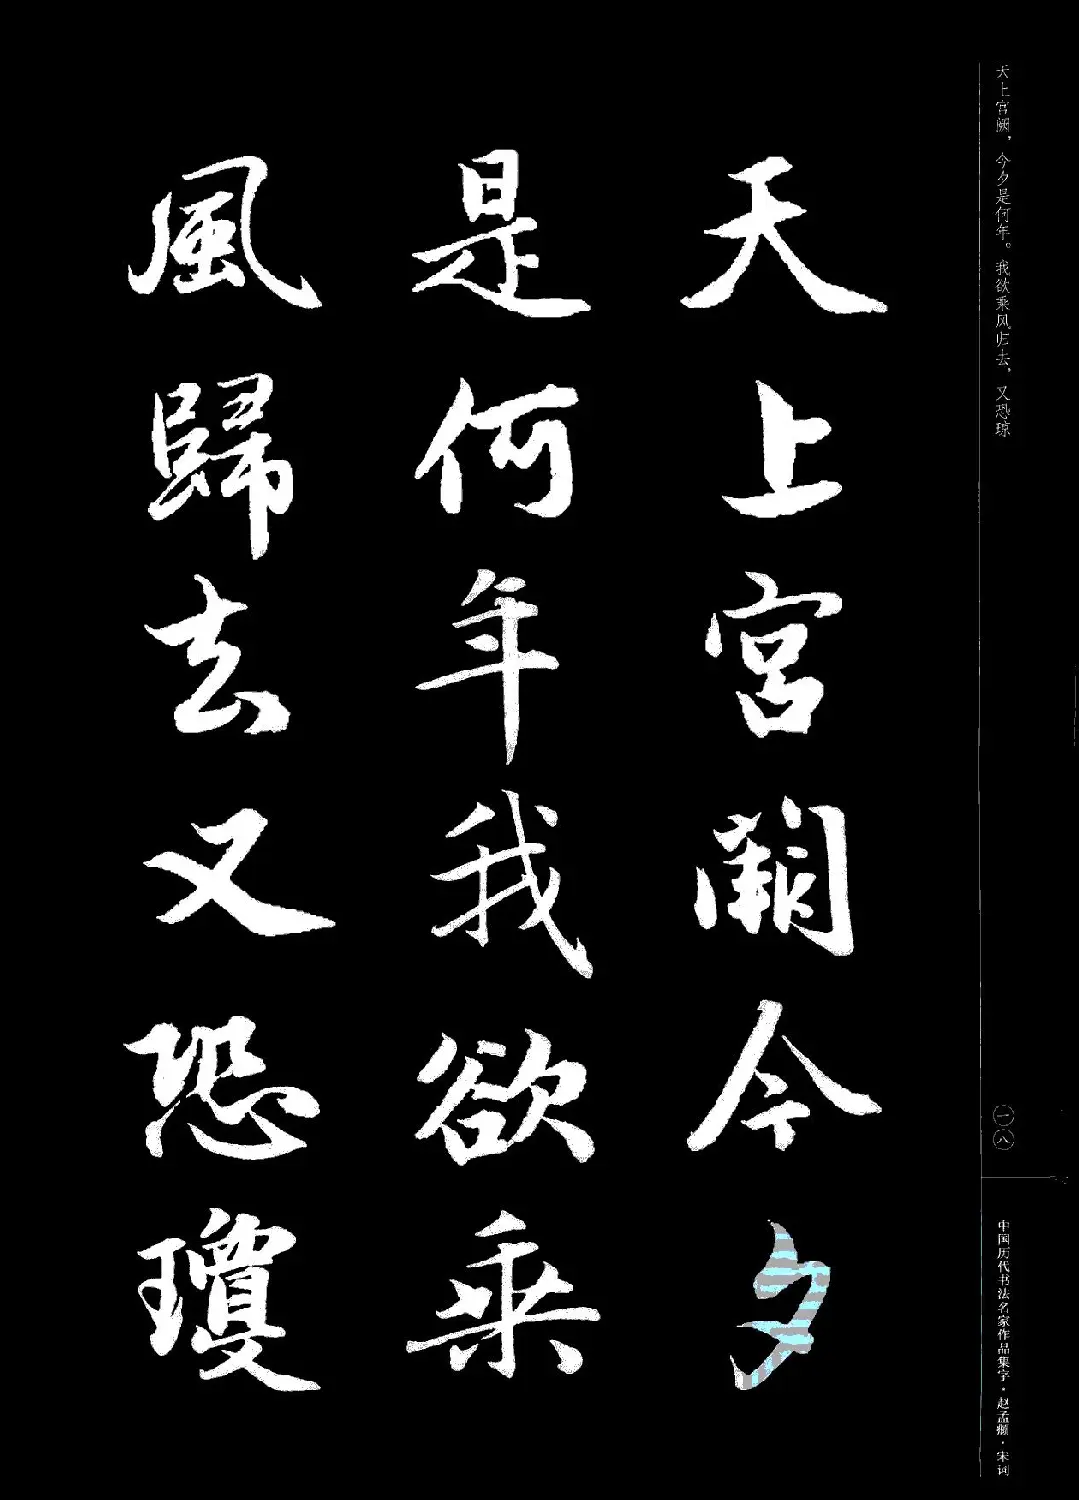 天上宫阙，今夕是何年。我欲乘风归去，又恐琼
天上宮闕今夕
是何年我欲乗
風歸去又恐瓊
一八
中国历代书法名家作品集字·赵孟頫·宋词